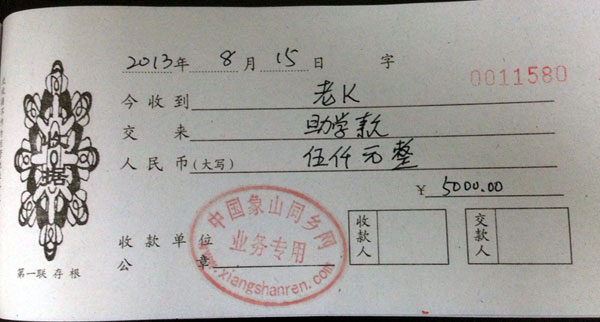 2013年 8月 15日 字
0011580
收据
今收到 老K
交来 助学款
人民币(大写) 伍仟元整
¥ 5000.00
收款单位
公章
中国象山同乡网
业务专用
www.xiangshanren.com
收款人
交款人
第一联存根